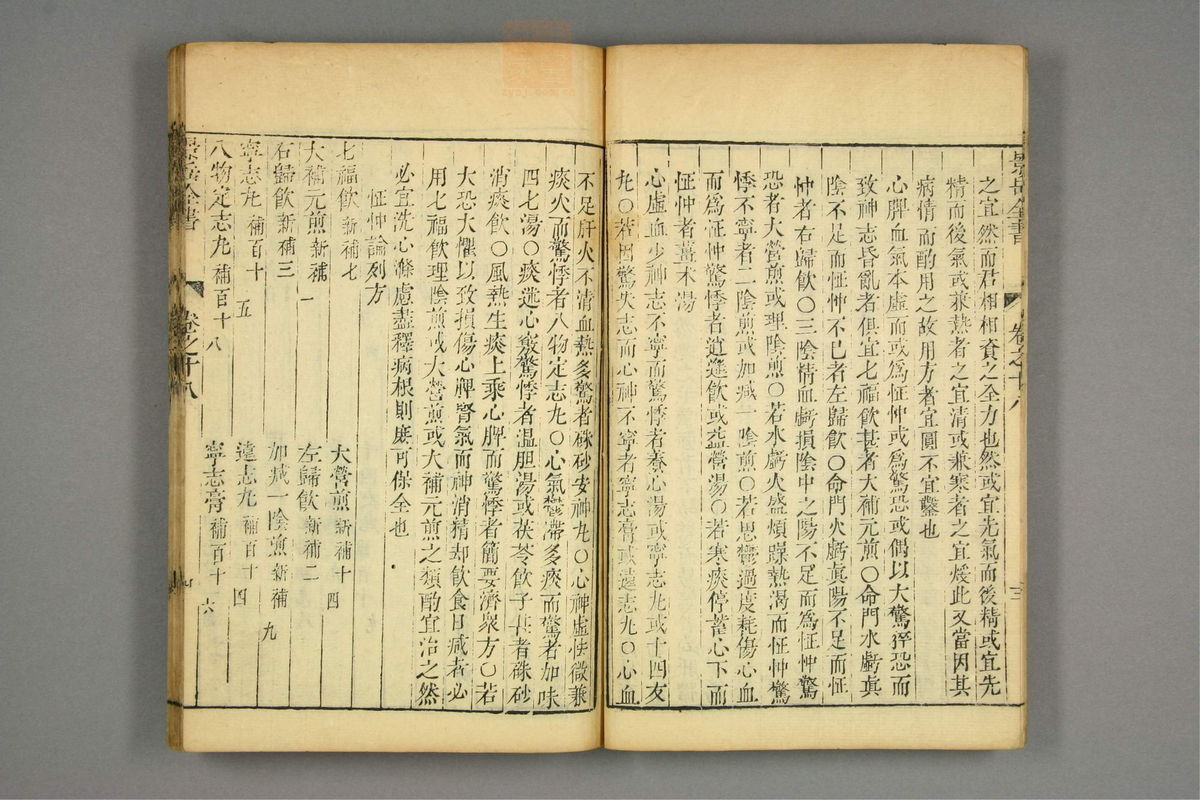 景岳全書 卷之十八
之宜然而君相相資之全力也然或宜先氣而後精或宜先
精而後氣或兼熱者之宜清或兼寒者之宜煖此又當因其
病情而酌用之故用方者宜圓不宜鑿也
心脾血氣本虛而或為怔忡或為驚恐或偶以大驚猝恐而
致神志昏亂者俱宜七福飲甚者大補元煎○命門水虧眞
陰不足而怔忡不已者左歸飲○命門火虧眞陽不足而怔
忡者右歸飲○三陰精血虧損陰中之陽不足而為怔忡驚
恐者大營煎或理陰煎○若水虧火盛煩躁熱渴而怔忡驚
悸不寧者二陰煎或加減一陰煎○若思鬱過度耗傷心血
而為怔忡驚悸者逍遙飲或益營湯○若寒痰停蓄心下而
怔忡者薑朮湯
心虛血少神志不寧而驚悸者養心湯或寧志丸或十四友
丸○若因驚失志而心神不寧者寧志膏或遠志丸○心血
不足肝火不清血熱多驚者硃砂安神丸○心神虛怯微兼
痰火而驚悸者八物定志丸○心氣鬱滯多痰而驚者加味
四七湯○痰迷心竅驚悸者溫胆湯或茯苓飲子甚者硃砂
消痰飲○風熱生痰上乘心脾而驚悸者簡要濟衆方○若
大恐大懼以致損傷心脾腎氣而神消精却飲食日減者必
用七福飲理陰煎或大營煎或大補元煎之類酌宜治之然
必宜洗心滌慮盡釋病根則庶可保全也
怔忡論列方
七福飲 新補七 大營煎 新補十四
大補元煎 新補一 左歸飲 新補二
右歸飲 新補三 加減一陰煎 新補九
寧志丸 補百十五 遠志丸 補百十四
八物定志丸 補百十八 寧志膏 補百十六
景岳全書 卷之十八